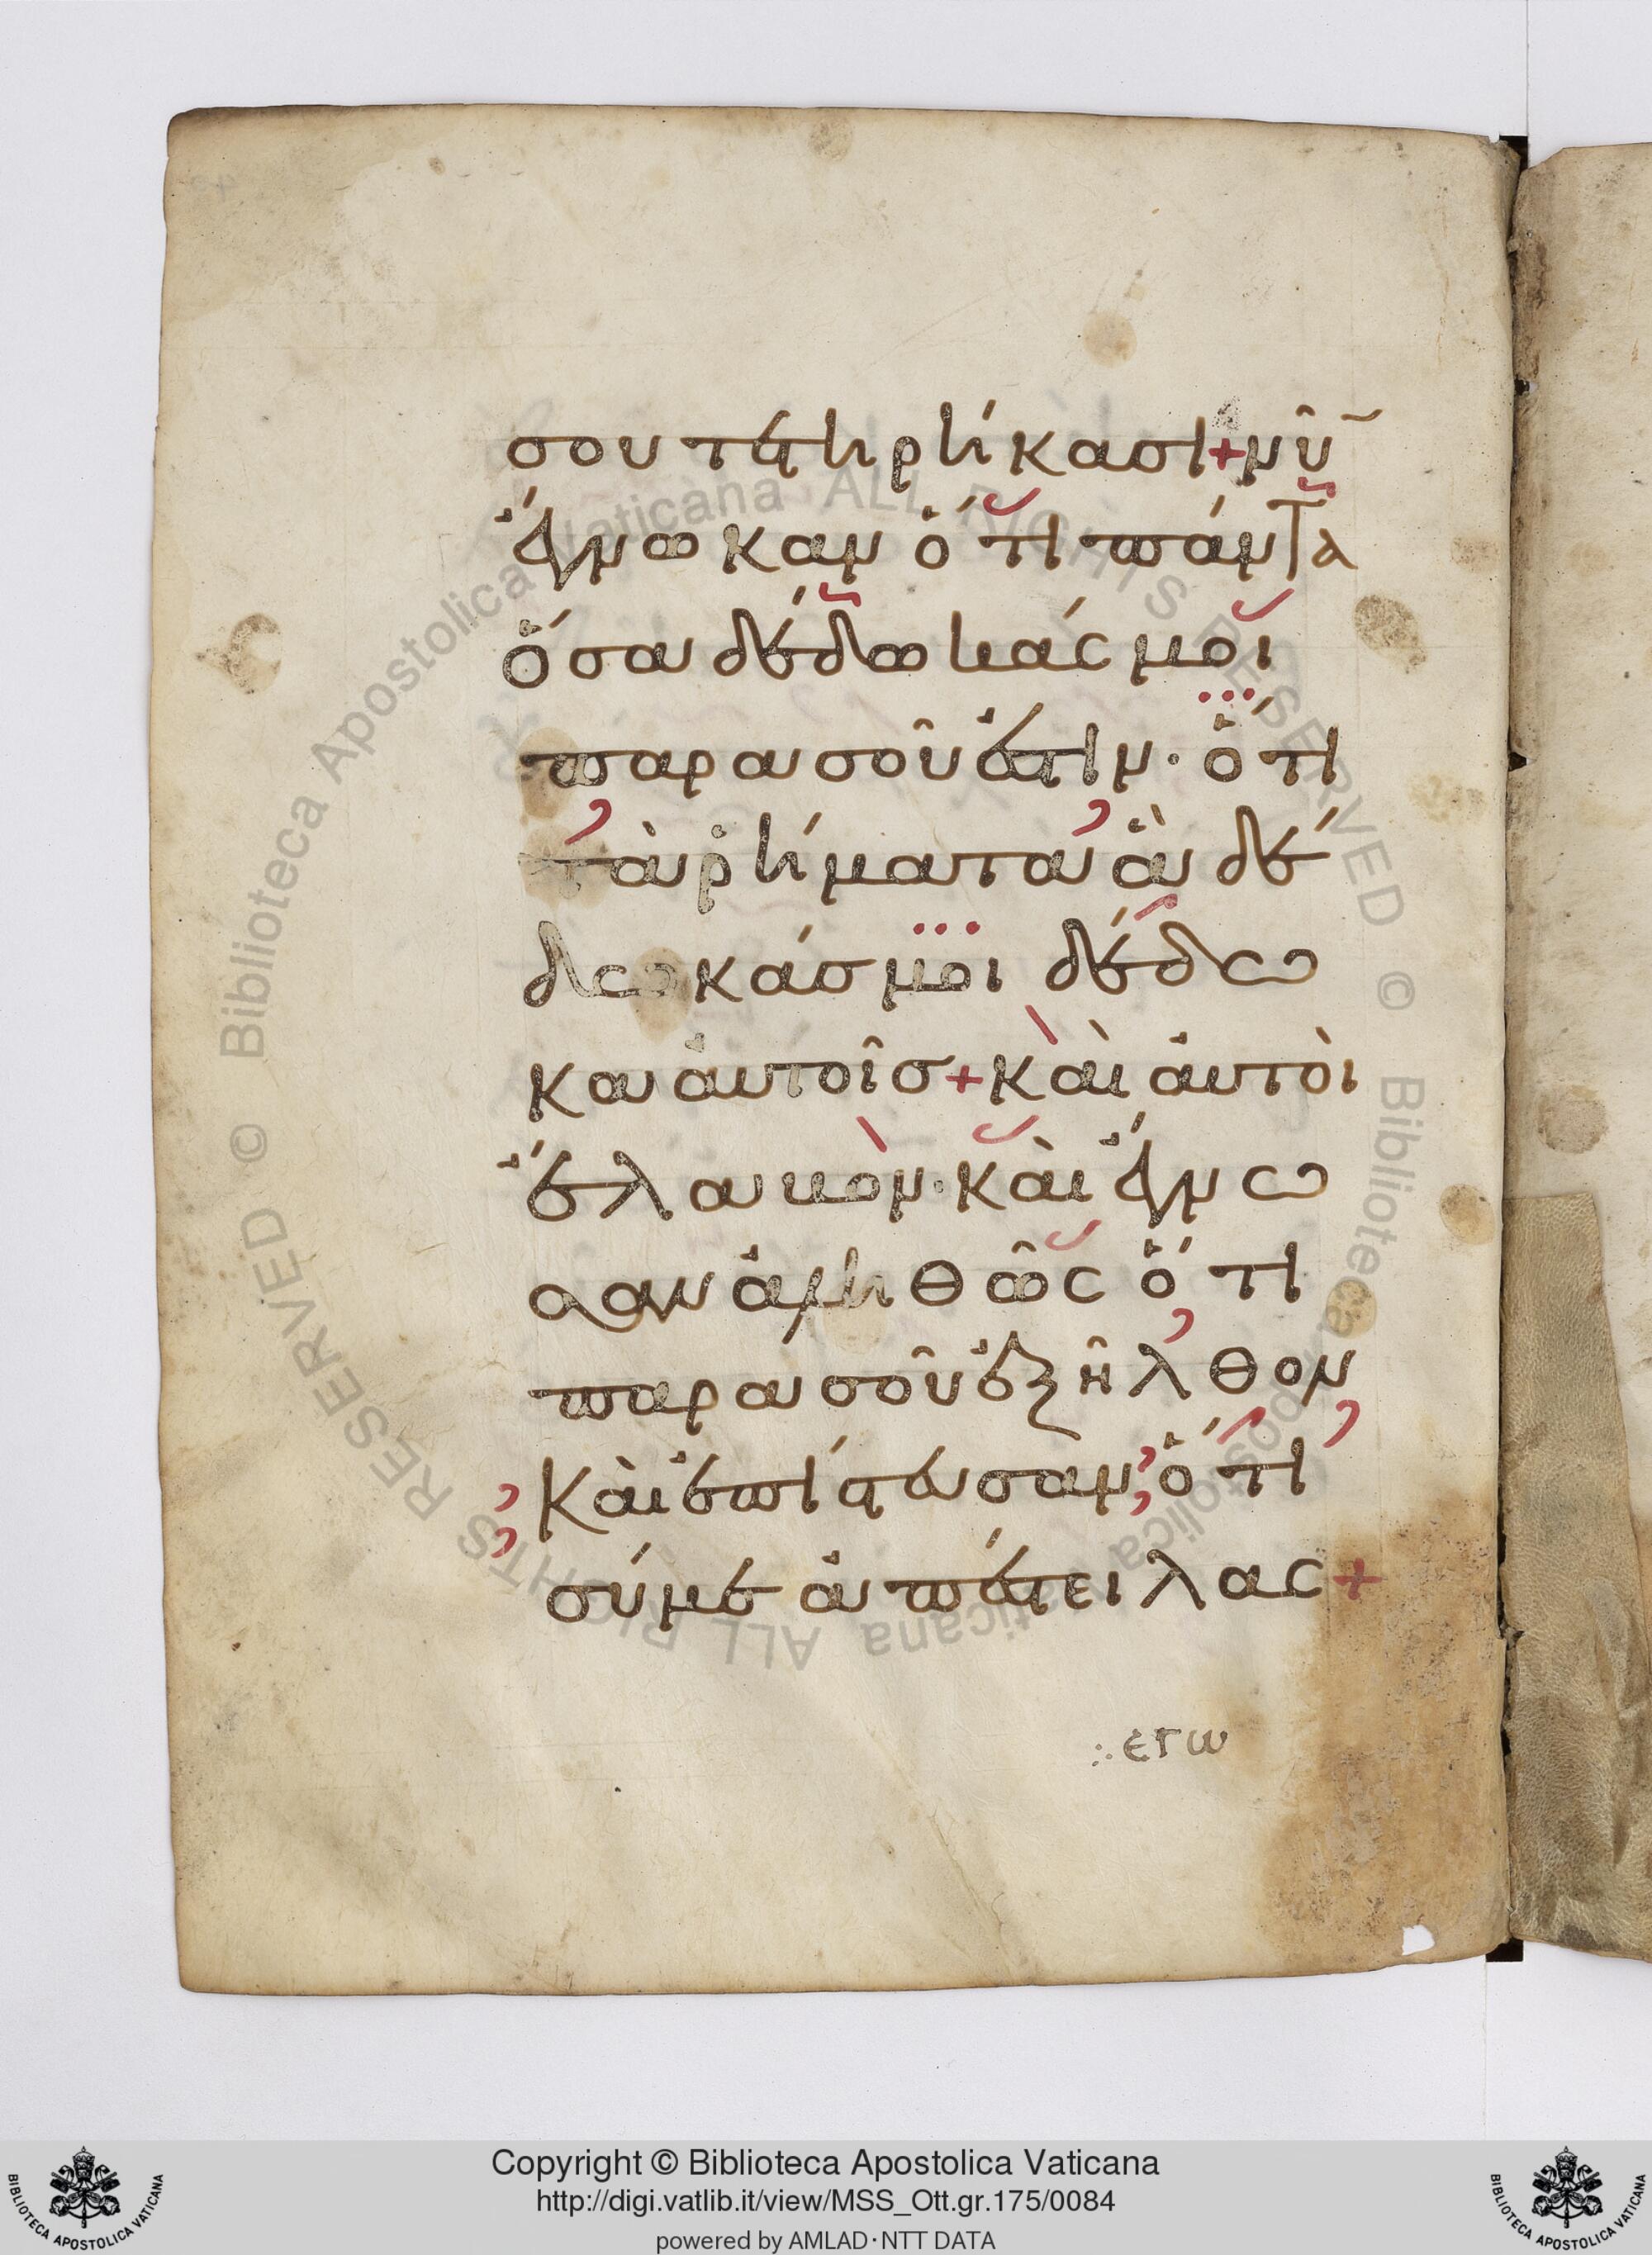 σου τετηρήκασι + νῦ̄
ἔγνωκαν ὅτι πάντα
ὅσα δέδωκάς μοι
παρα σοῦ ἐστιν · ὅτι
τὰ ῥήματα ἃ δέ
δωκάσ μοι δέδω
κα αὐτοῖσ + κὰι ἀυτὸι
ἔλαβον · κὰι ἔγνω
σαν ἀληθῶς ὅτι
παρα σοῦ ἐξῆλθον
κὰι ἐπίστευσαν ὅτι
σύ με ἀπέστειλας +
:. εγω
© Biblioteca Apostolica Vaticana ALL RIGHTS RESERVED © Biblioteca Apostolica Vaticana ALL RIGHTS RESERVED
Copyright © Biblioteca Apostolica Vaticana
http://digi.vatlib.it/view/MSS_Ott.gr.175/0084
powered by AMLAD·NTT DATA
BIBLIOTECA APOSTOLICA VATICANA
BIBLIOTECA APOSTOLICA VATICANA